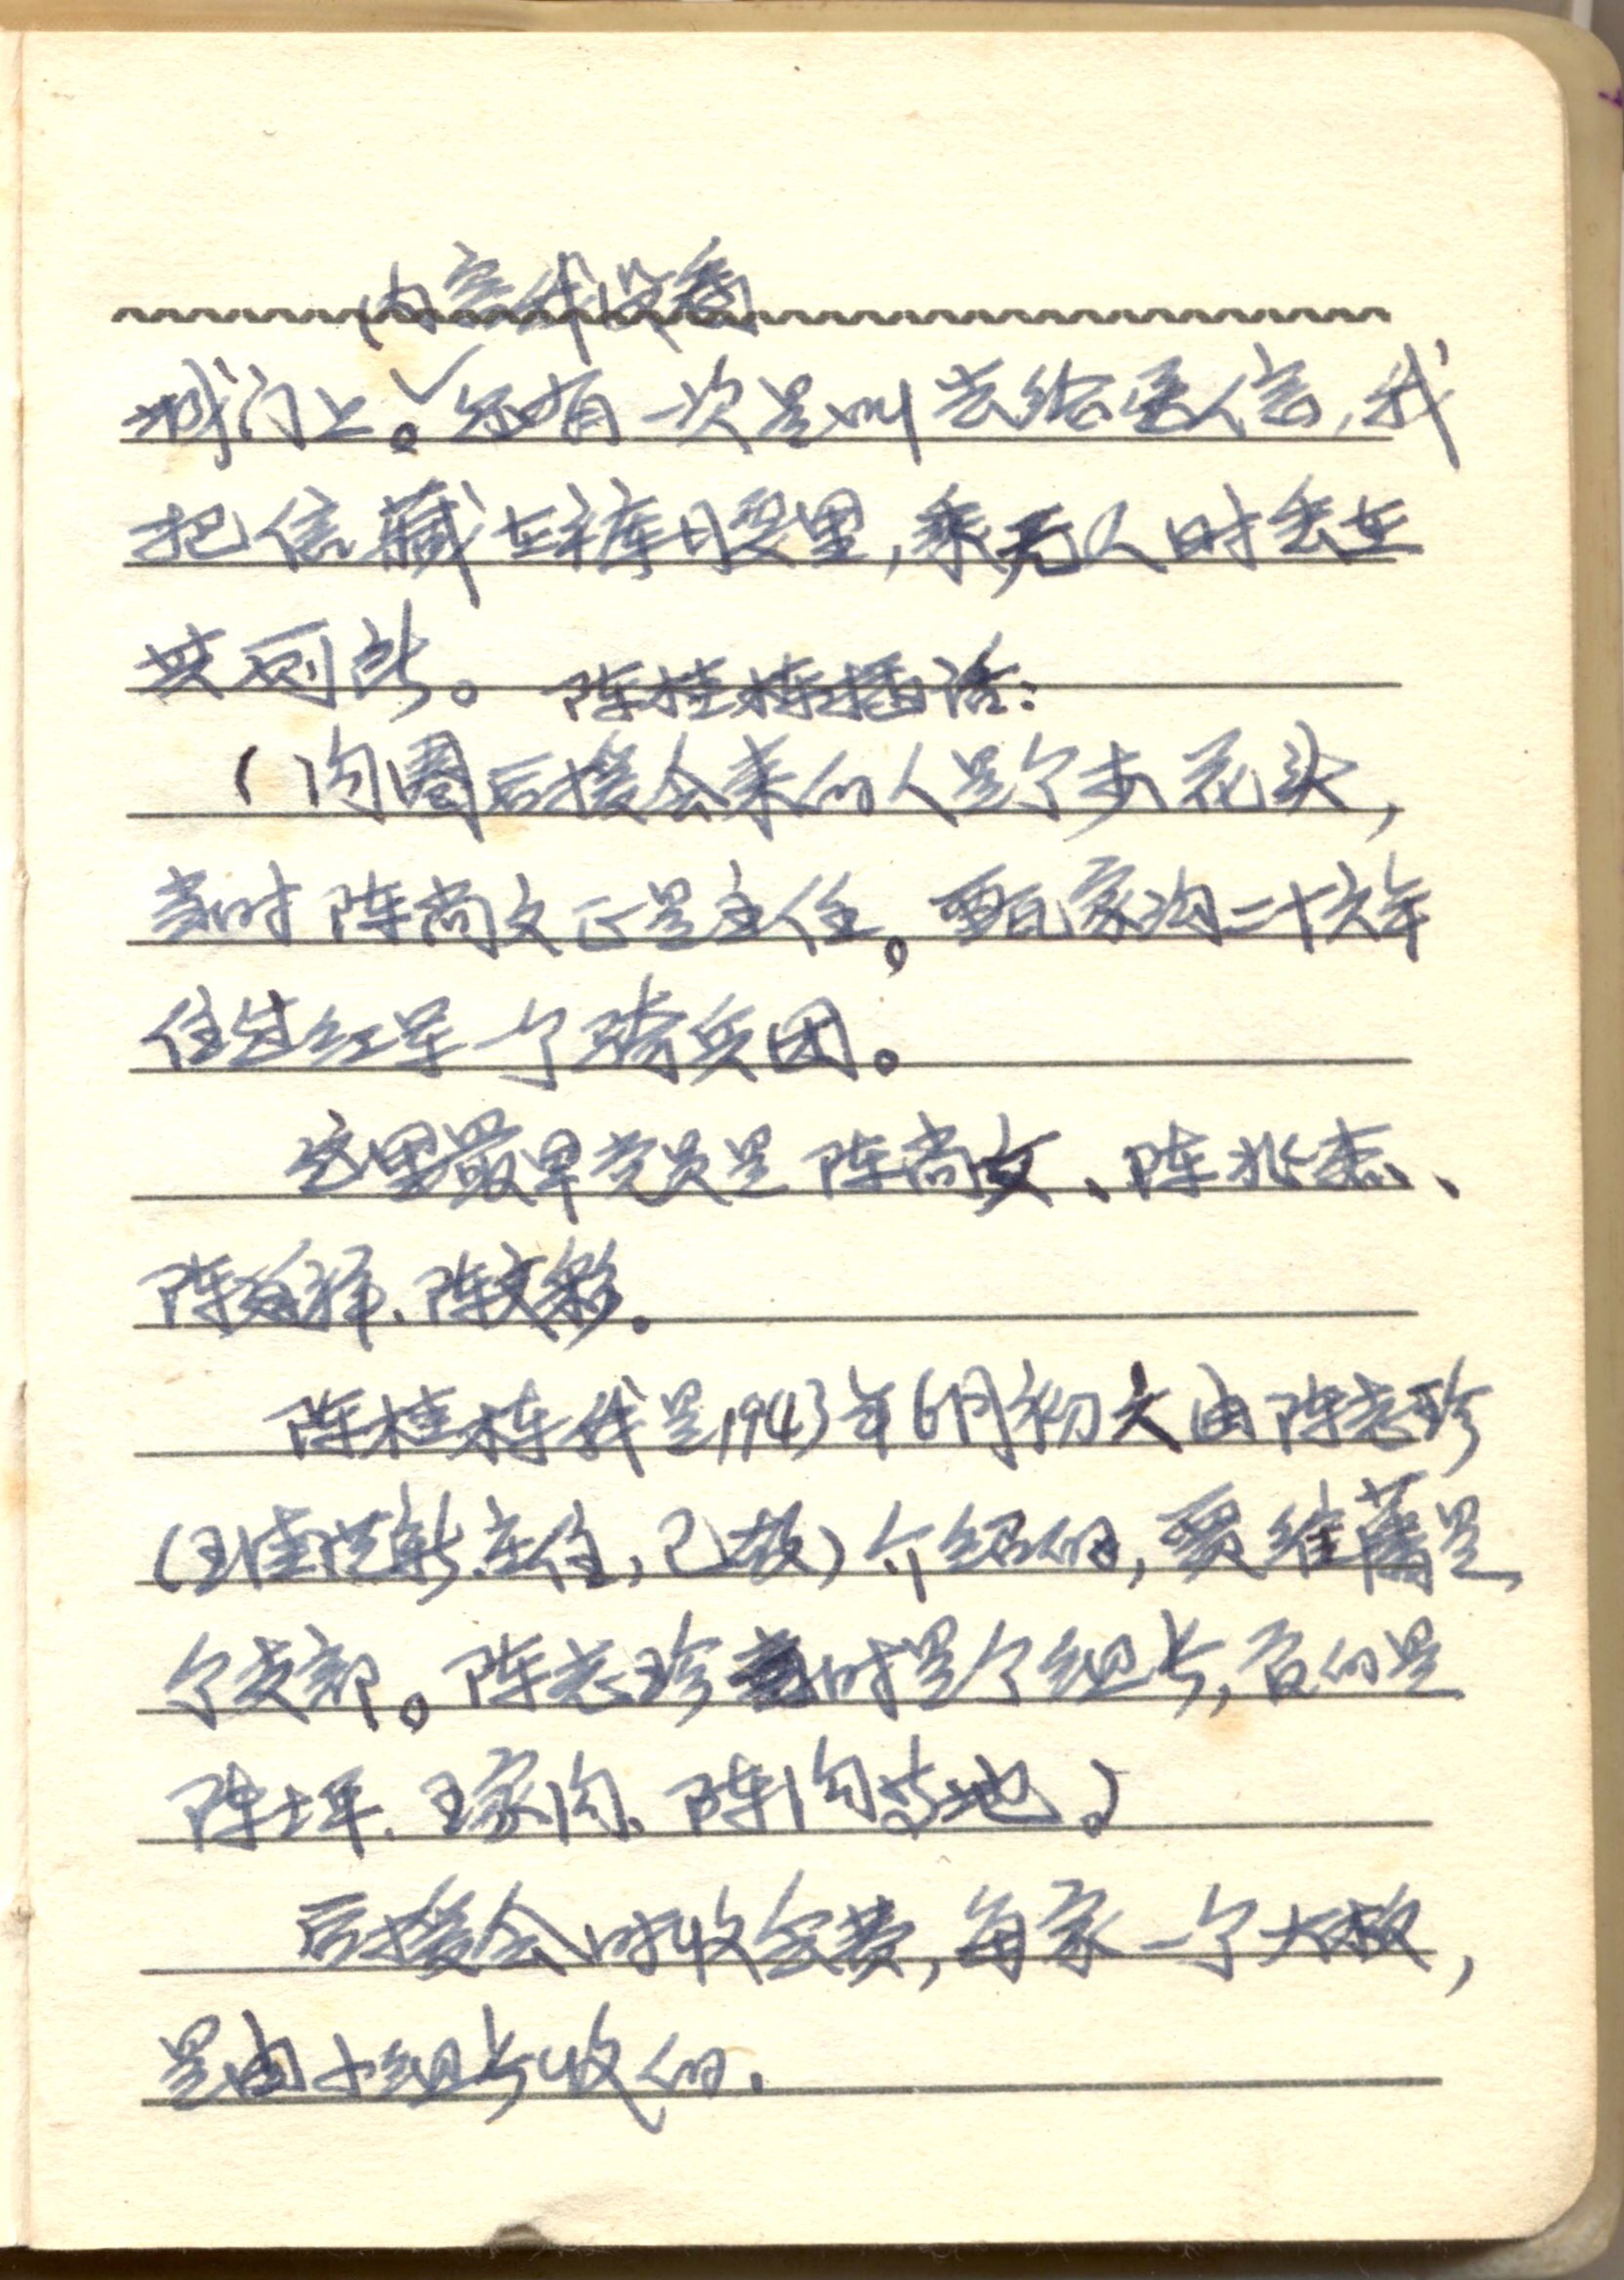 内容我没看
城门上。✓还有一次是叫去给送信,我
把信藏在裤腰里,乘无人时丢在
共厕所。陈桂栋插话:
(沟圈后援会来的人是个李花头,
当时陈尚文正是主任。贾家沟二十六年
住过红军一个骑兵团。
这里最早党员是陈尚文、陈兆杰、
陈海祥、陈文彩。
陈桂栋我是1943年6月初六由陈志珍
(主任,已故)介绍的,贾维藩是
个支部。陈志珍当时是个组长,百的是
陈坪、王家沟、陈沟等地。)
后援会时收会费,每家一个大板,
是由小组长收的.